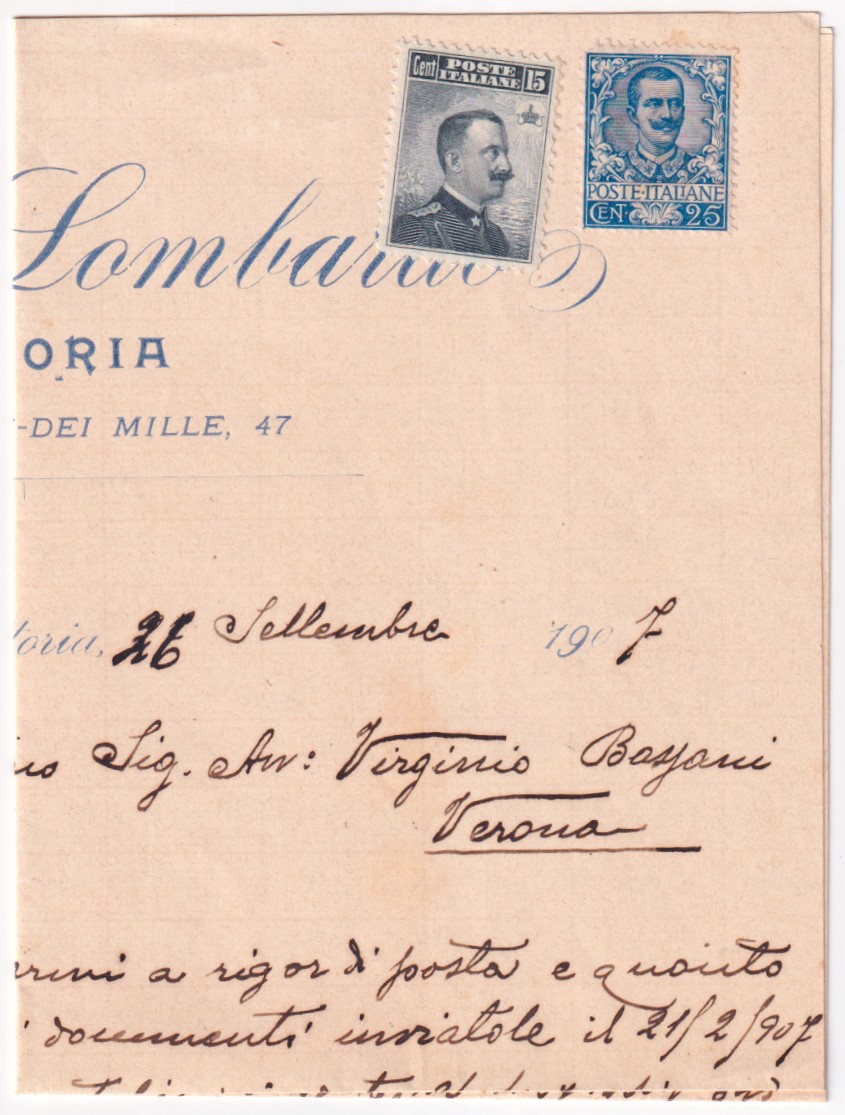 Cent POSTE ITALIANE 15
POSTE·ITALIANE
CEN· 25
Lombardo
ORIA
-DEI MILLE, 47
toria, 26 Settembre 1907
Sig. Avv: Virginio Bassani
Verona
a rigor di posta e quanto
documenti inviatole il 21/2/907